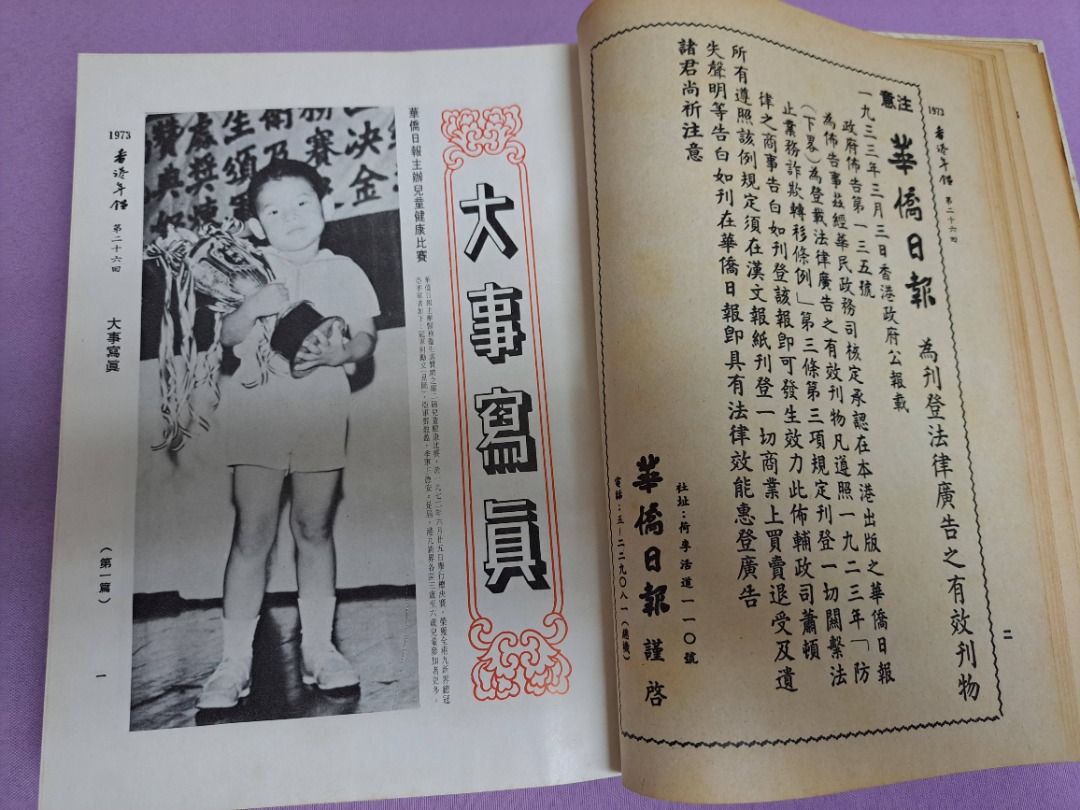 1973 香港年鑑 第二十六回
二
注意
華僑日報 為刊登法律廣告之有效刊物
一九三三年三月三日香港政府公報載
政府佈告第一三五號
為佈告事茲經華民政務司核定承認在本港出版之華僑日報
(下畧)為登載法律廣告之有效刊物凡遵照一九二三年「防
止業務詐欺轉移條例」第三條第三項規定刊登一切關繫法
律之商事告白如刊登該報卽可發生效力此佈輔政司蕭頓
所有遵照該例規定須在漢文報紙刊登一切商業上買賣退受及遺
失聲明等告白如刊在華僑日報卽具有法律效能惠登廣告
諸君尚祈注意
社址:荷李活道一一〇號
華僑日報 謹啓
電話:五-二二九〇八一(總機)
大事寫眞
華僑日報主辦兒童健康比賽
決金
務賽
衛及
生頒
處獎
贊典
1973 香港年鑑 第二十六回 大事寫眞 (第一篇) 一